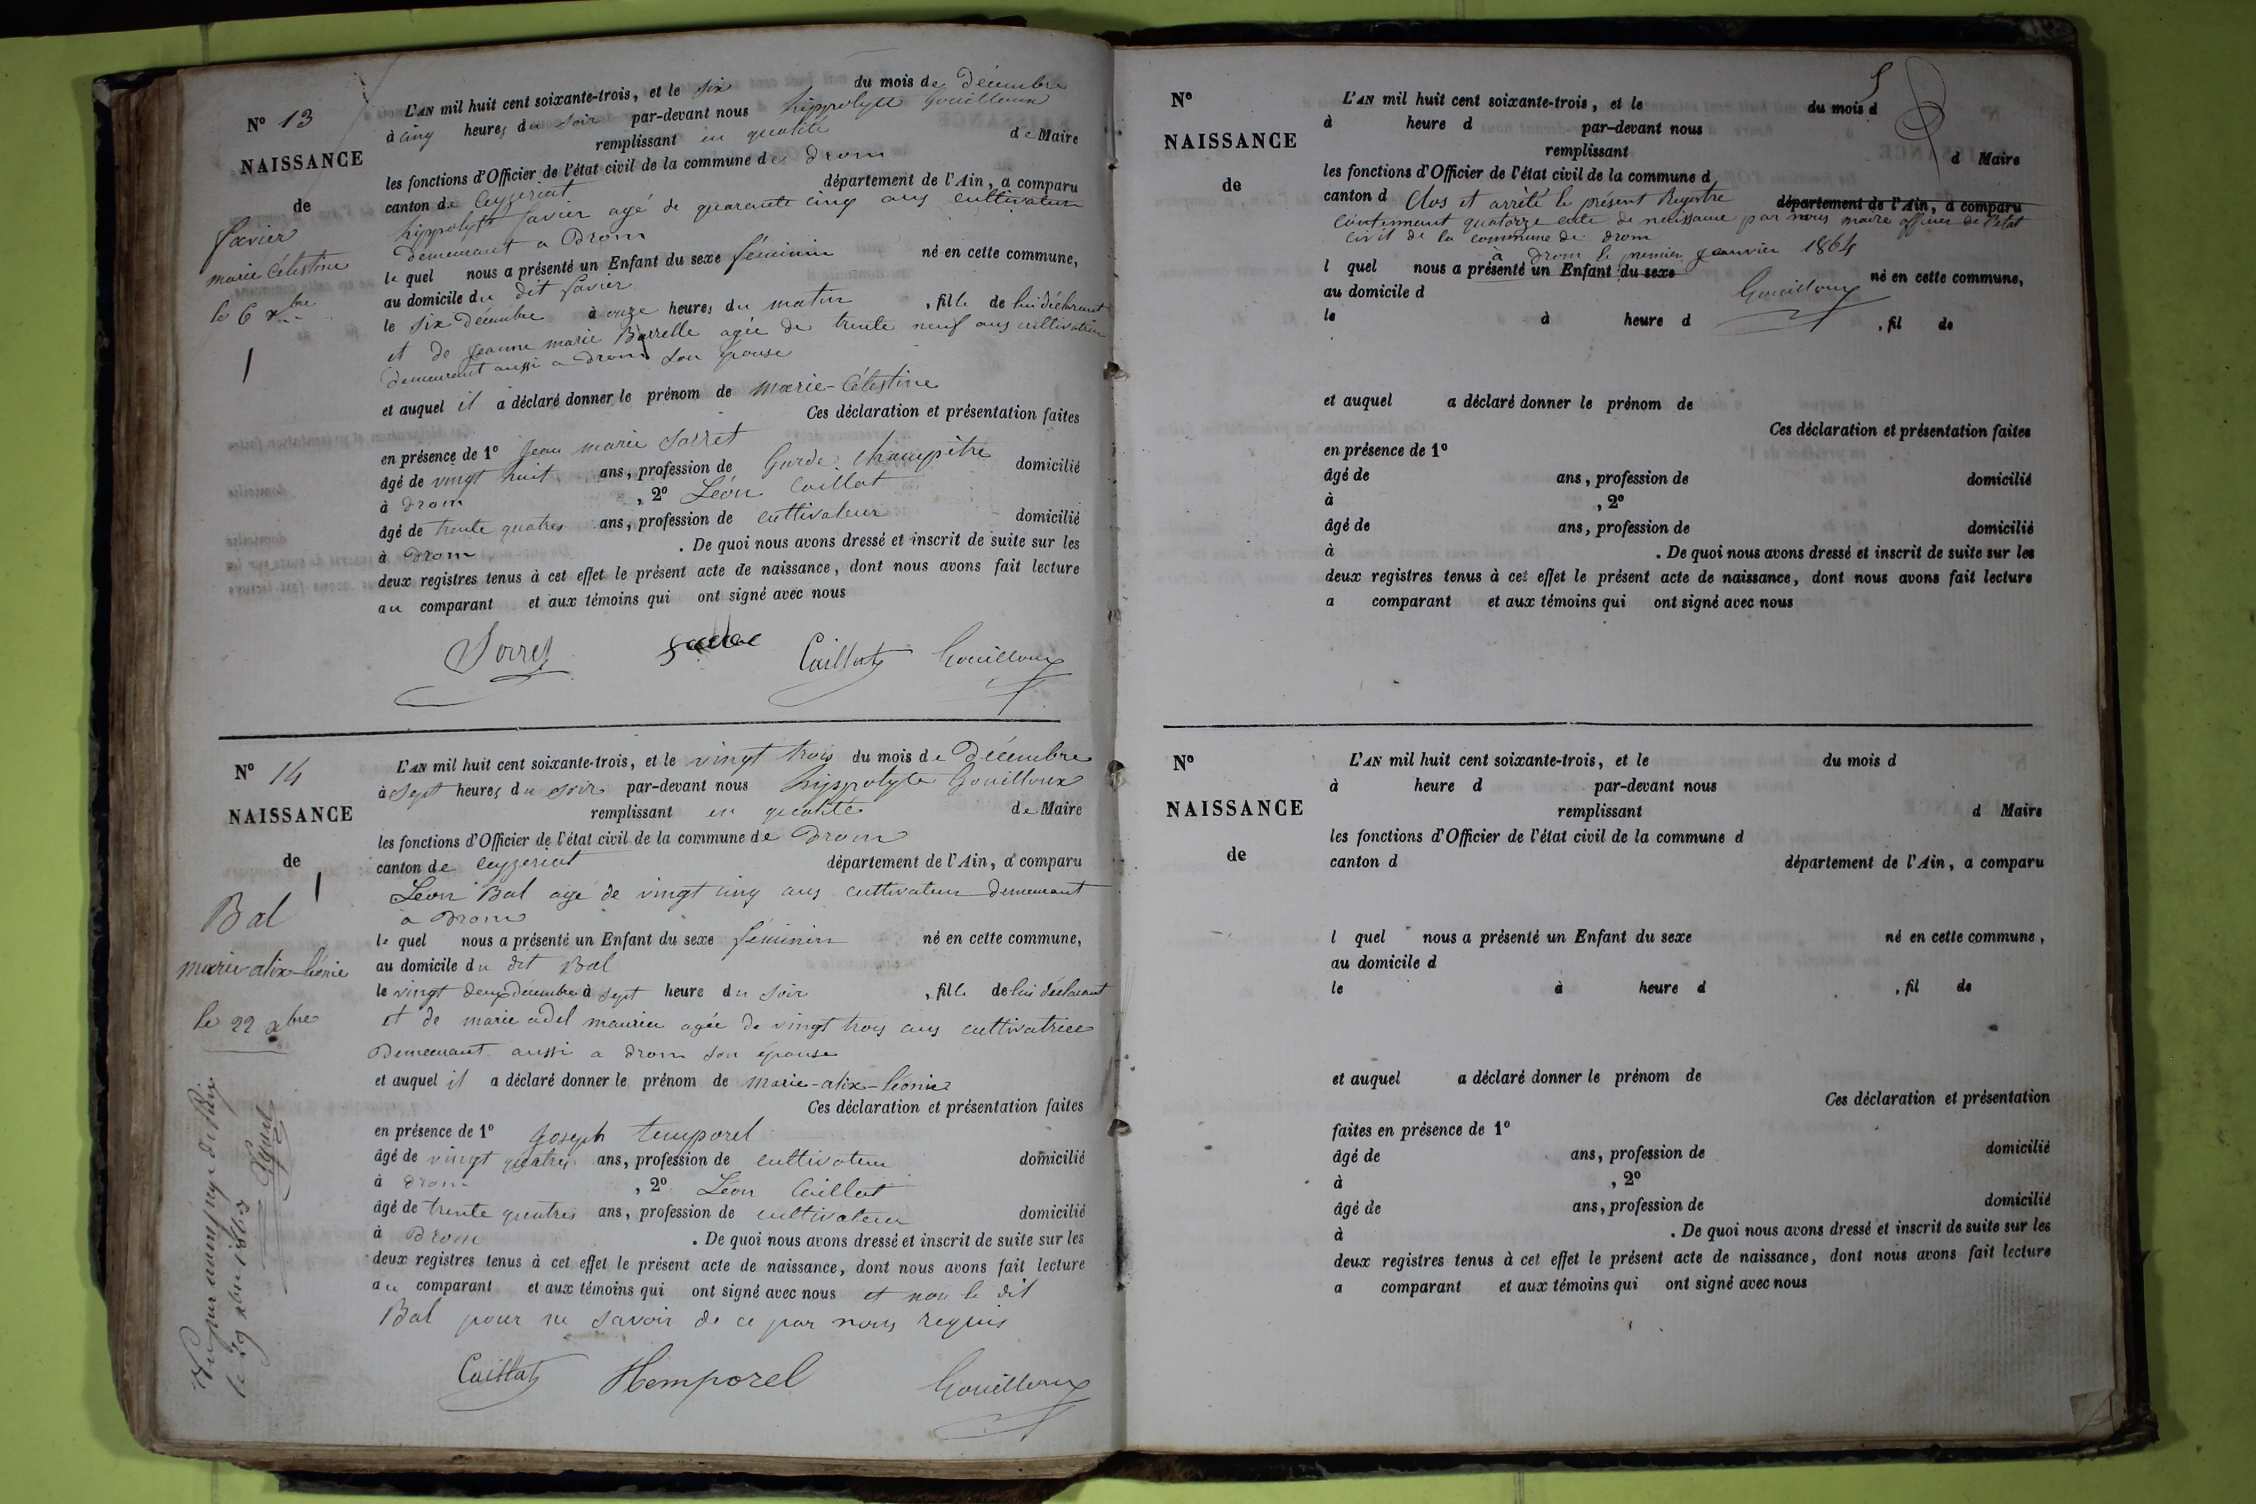 N° 13
NAISSANCE
de
favier
marie Célestine
le 6 xbre
L'AN mil huit cent soixante-trois, et le six du mois de Décembre
à cinq heures du soir par-devant nous hippolyte Gouilloux
remplissant en qualité de Maire
les fonctions d'Officier de l'état civil de la commune de drom
canton de Ceyzeriat département de l'Ain, a comparu
hippolyte favier agé de quarante cinq ans cultivateur
demeurant a Drom
le quel nous a présenté un Enfant du sexe féminin né en cette commune,
au domicile du dit favier
le six Décembre à onze heures du matin , fille de lui déclarant
et de jeanne marie Barrelle agée de trente neuf ans cultivatrice
demeurant aussi a drom son épouse
et auquel il a déclaré donner le prénom de marie-Célestine
Ces déclaration et présentation faites
en présence de 1° jean marie Sorret
âgé de vingt huit ans, profession de Garde champêtre domicilié
à drom , 2° Léon Caillat
âgé de trente quatres ans, profession de cultivateur domicilié
à Drom . De quoi nous avons dressé et inscrit de suite sur les
deux registres tenus à cet effet le présent acte de naissance, dont nous avons fait lecture
au comparant et aux témoins qui ont signé avec nous
Sorret Caillat Gouilloux
N° 14
NAISSANCE
de
Bal
marie-alix-léonie
le 22 xbre
L'AN mil huit cent soixante-trois, et le vingt trois du mois de Décembre
à Sept heures du soir par-devant nous hippolyte Gouilloux
remplissant en qualité de Maire
les fonctions d'Officier de l'état civil de la commune de Drom
canton de ceyzeriat département de l'Ain, a comparu
Léon Bal agé de vingt cinq ans cultivateur demeurant
a Drom
le quel nous a présenté un Enfant du sexe féminin né en cette commune,
au domicile du dit Bal
le vingt deux decembre à sept heure du soir , fille de lui déclarant
et de marie adel maurier agée de vingt trois ans cultivatrice
Demeurant aussi a drom son épouse
et auquel il a déclaré donner le prénom de marie-alix-léonie
Ces déclaration et présentation faites
en présence de 1° Joseph temporel
âgé de vingt quatres ans, profession de cultivateur domicilié
à drom , 2° Léon Caillat
âgé de trente quatres ans, profession de cultivateur domicilié
à Drom . De quoi nous avons dressé et inscrit de suite sur les
deux registres tenus à cet effet le présent acte de naissance, dont nous avons fait lecture
au comparant et aux témoins qui ont signé avec nous et non le dit
Bal pour ne savoir de ce par nous requis
Caillat Hemporel Gouilloux
Vu par nous juge de Paix
le 29 xbre 1863
N°
NAISSANCE
de
L'AN mil huit cent soixante-trois, et le du mois d
à heure d par-devant nous
remplissant d Maire
les fonctions d'Officier de l'état civil de la commune d
canton d Clos et arrêté le présent Registre département de l'Ain, a comparu
contenant quatorze acte de naissance par nous maire officier de l'état
civil de la commune de drom
à drom le premier janvier 1864
l quel nous a présenté un Enfant du sexe né en cette commune,
au domicile d Gouilloux
le à heure d , fil de
et auquel a déclaré donner le prénom de
Ces déclaration et présentation faites
en présence de 1°
âgé de ans, profession de domicilié
à , 2°
âgé de ans, profession de domicilié
à . De quoi nous avons dressé et inscrit de suite sur les
deux registres tenus à cet effet le présent acte de naissance, dont nous avons fait lecture
a comparant et aux témoins qui ont signé avec nous
N°
NAISSANCE
de
L'AN mil huit cent soixante-trois, et le du mois d
à heure d par-devant nous
remplissant d Maire
les fonctions d'Officier de l'état civil de la commune d
canton d département de l'Ain, a comparu
l quel nous a présenté un Enfant du sexe né en cette commune,
au domicile d
le à heure d , fil de
et auquel a déclaré donner le prénom de
Ces déclaration et présentation
faites en présence de 1°
âgé de ans, profession de domicilié
à , 2°
âgé de ans, profession de domicilié
à . De quoi nous avons dressé et inscrit de suite sur les
deux registres tenus à cet effet le présent acte de naissance, dont nous avons fait lecture
a comparant et aux témoins qui ont signé avec nous